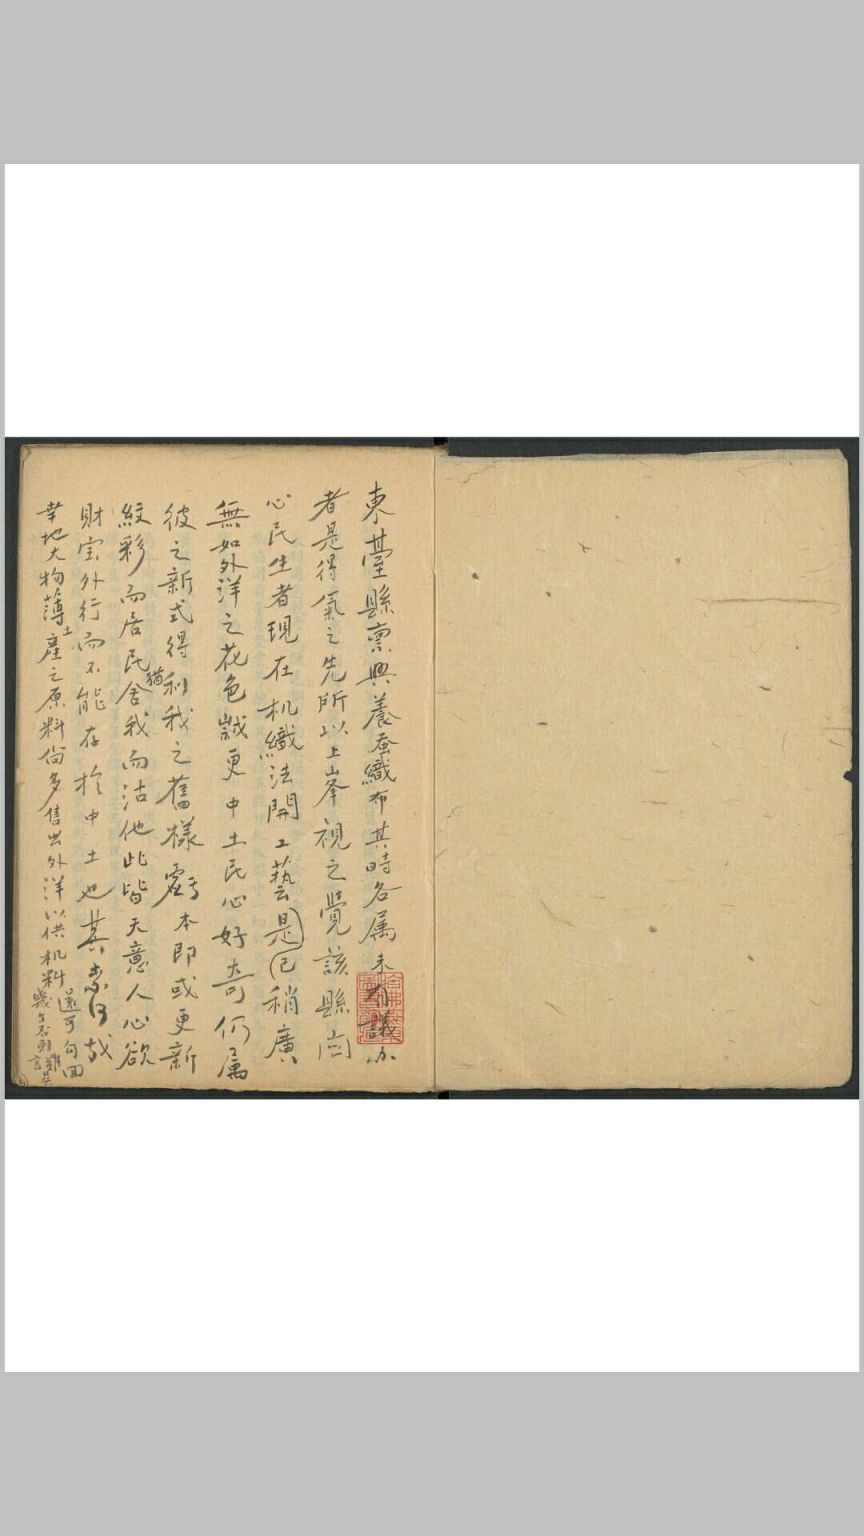 東臺縣禀興養蚕織布其時各属未有議办
者是得氣之先所以上峯視之覺該縣尚
心民生者現在机織法開工藝是已稍廣
無如外洋之花色誠更中土民心好奇仍属
彼之新式得利猶我之舊樣虧本即或更新
紋彩而居民舍我而沽他此皆天意人心欲
財宝外行而不能存於中土也其奈何哉
幸地大物薄土產之原料尚多售出外洋以供机料
還可勾回
幾分否則難
言